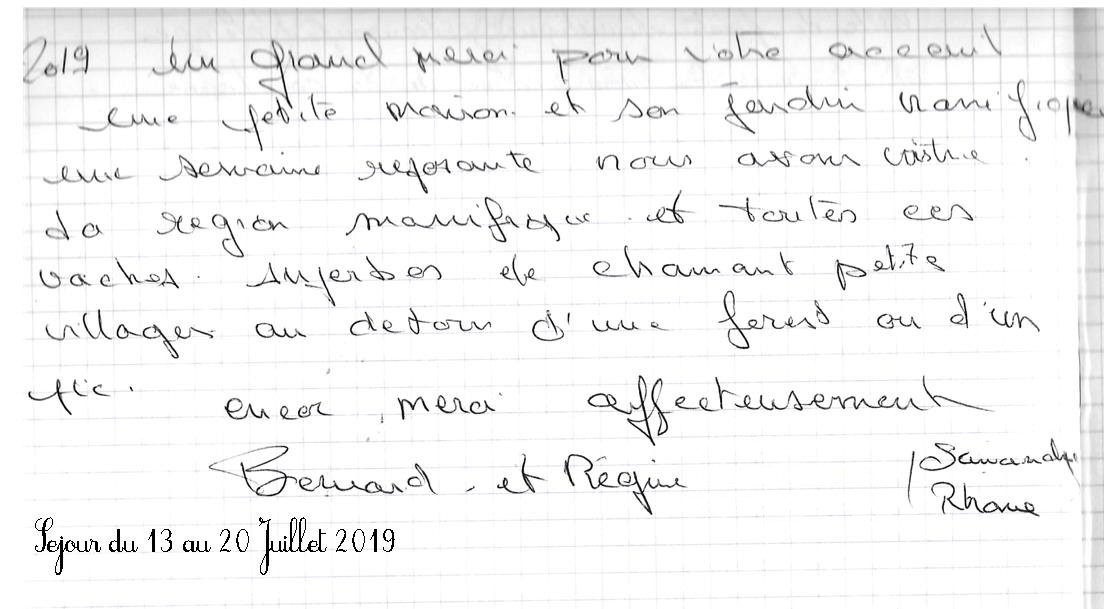 2019 un grand merci pour votre acceuil
une petite maison et son jardin manifique
une semaine reposante nous avons visitée
la region manifique et toutes ces
vaches. superbes de chamant petits
villages au detour d'une foret ou d'un
pic.
encor merci affecteusement
Bernard et Régine
Rhone
Sejour du 13 au 20 Juillet 2019